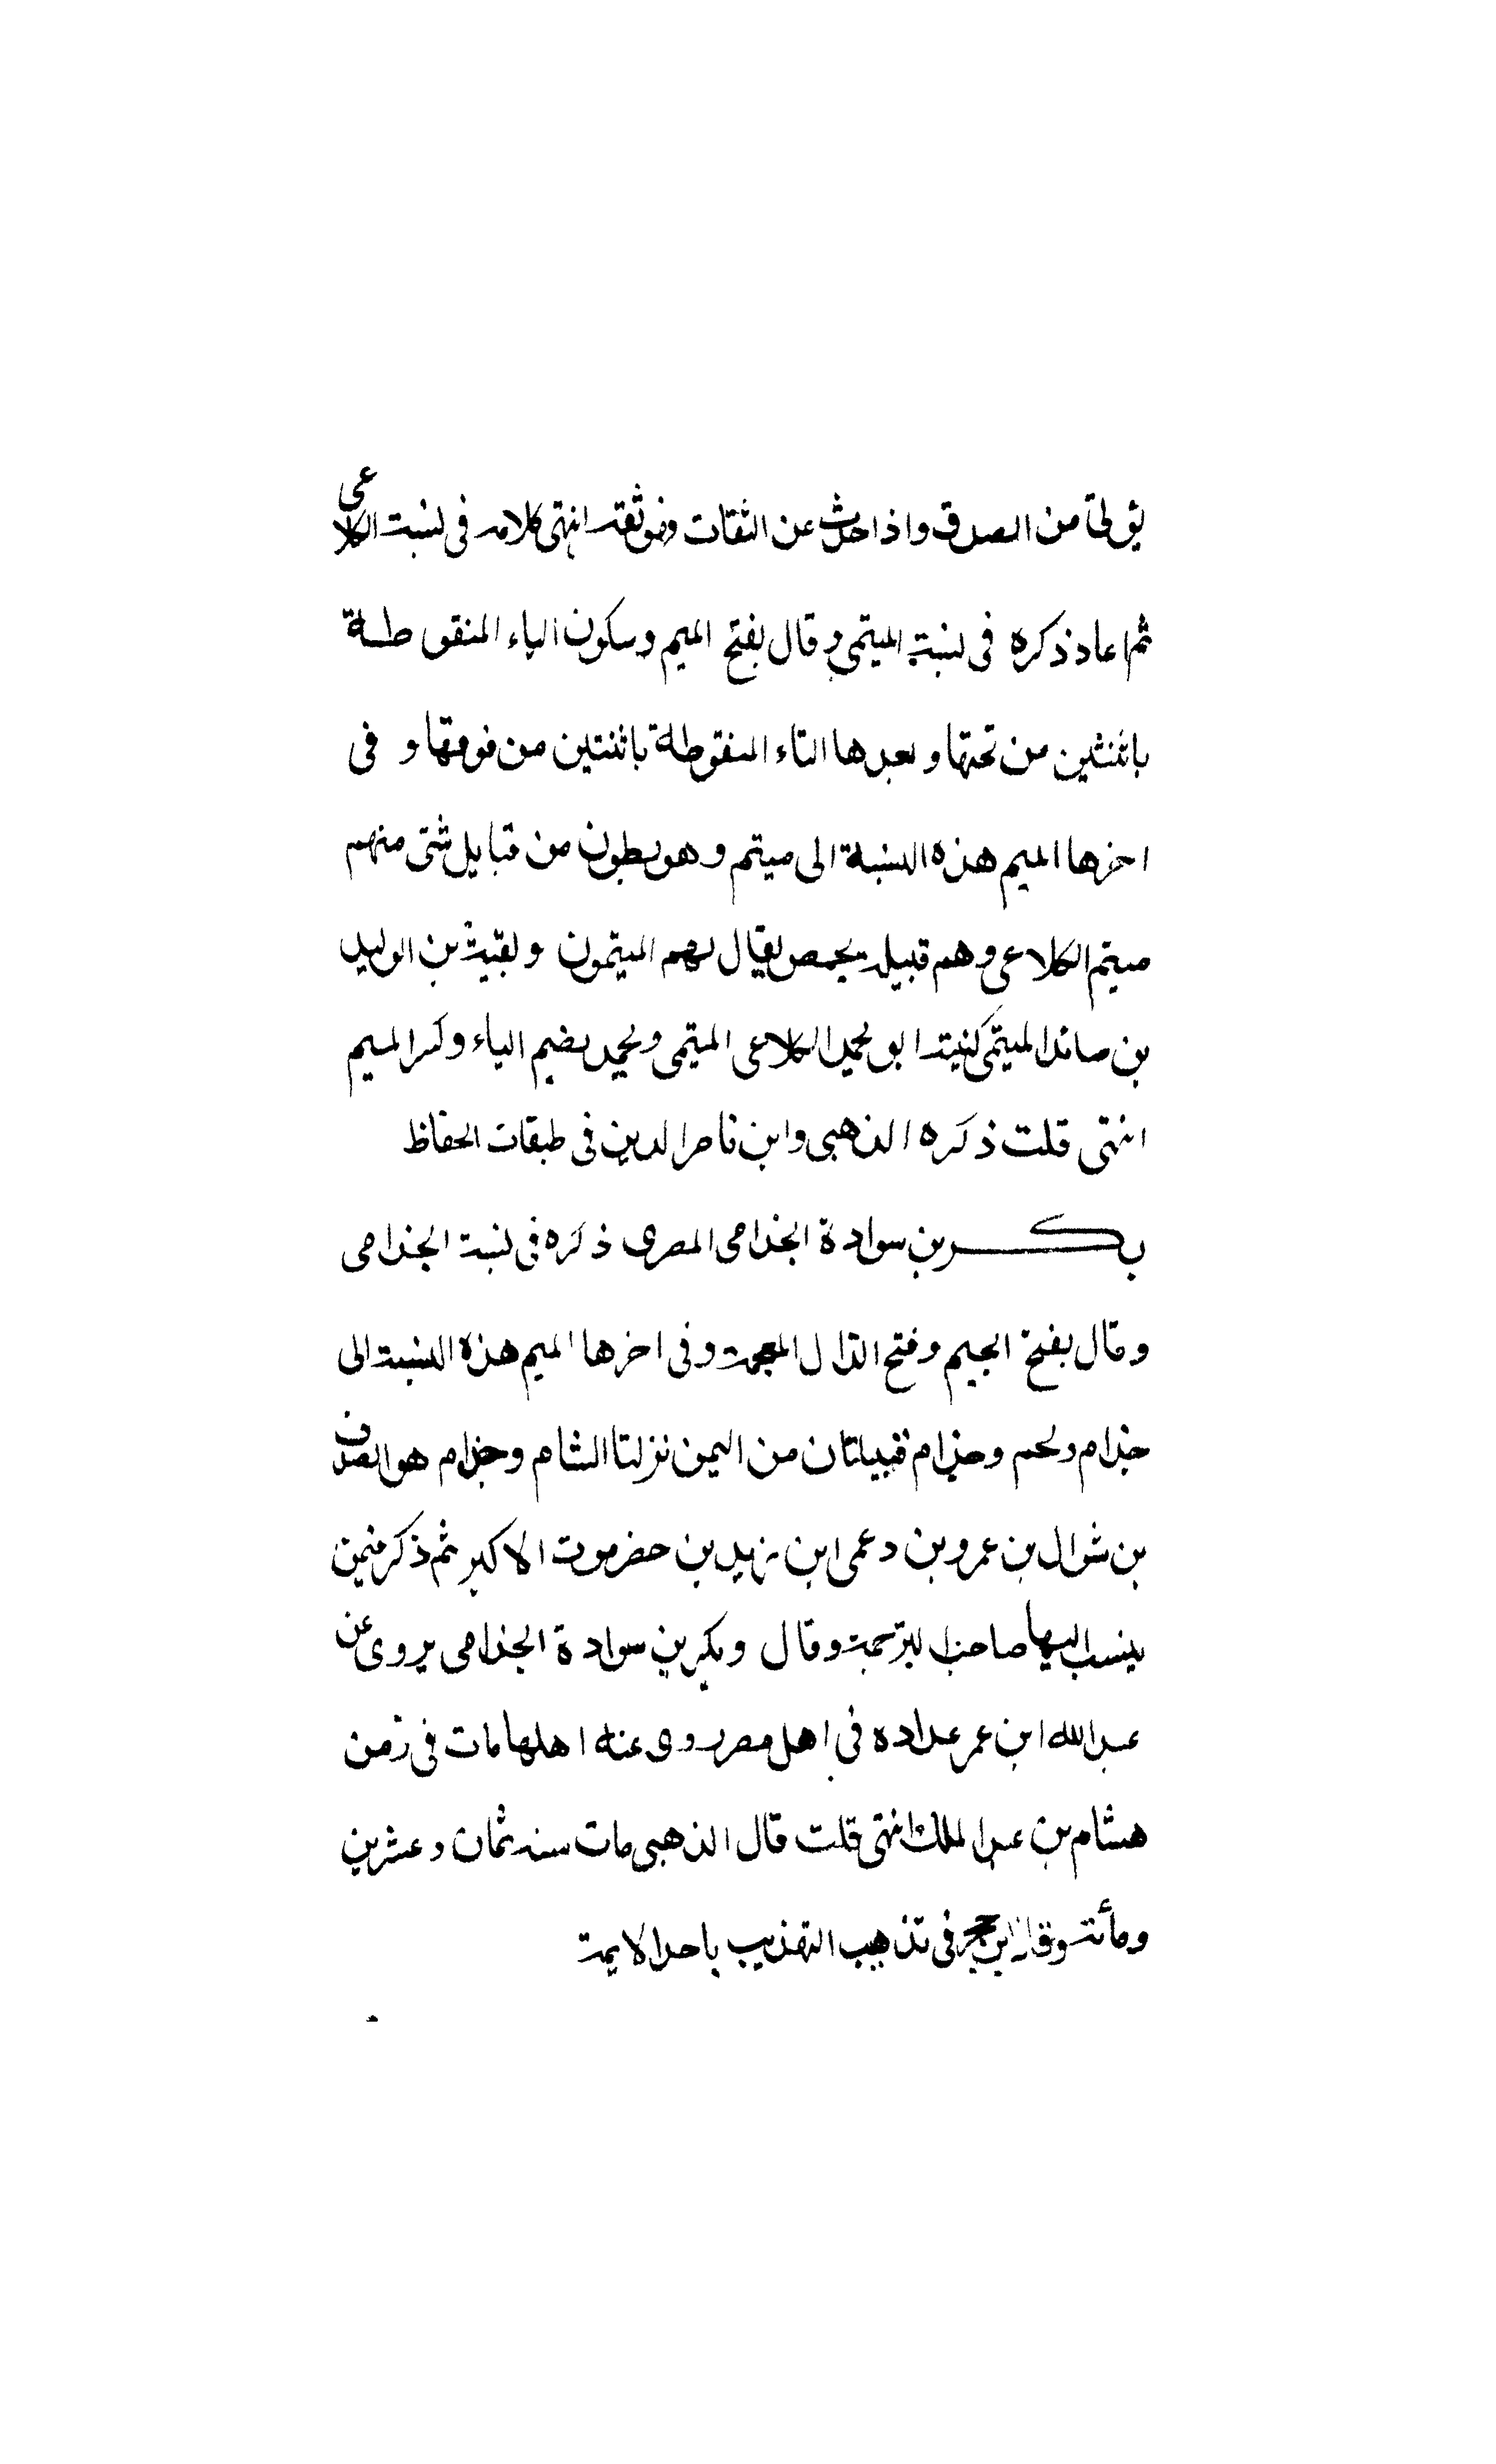 يؤتى من الصدق واذا حدث عن الثقات فهو ثقة انتهى كلامه فى نسبة الكلاعى
ثم اعاد ذكره فى نسبة الميتمى وقال بفتح الميم وسكون الياء المنقوطة
باثنتين من تحتها وبعدها التاء المنقوطة باثنتين من فوقها و فى
اخرها الميم هذه النسبة الى ميتم وهو بطون من قبايل شتى منهم
ميتم الكلاعى وهم قبيلة بحمص يقال لهم الميتمون وبقية بن الوليد
بن صائد الميتمى كنيته ابو يحمد الكلاعى الميتمى ويحمد بضم الياء وكسر الميم
انتهى قلت ذكره الذهبى وابن ناصر الدين فى طبقات الحفاظ
بكر بن سوادة الجذامى المصرى ذكره فى نسبة الجذامى
وقال بفتح الجيم وفتح الذال المعجمة وفى اخرها الميم هذه النسبة الى
جذام ولخم وجذام قبيلتان من اليمن نزلتا الشام وجذام هو الصدف
بن شوال بن عمرو بن دعمى ابن زيد بن حضرموت الاكبر ثم ذكر فيمن
ينسب اليها صاحب الترجمة وقال وبكر بن سوادة الجذامى يروى عن
عبد الله ابن عمر عداده فى اهل مصر روى عنه اهلها مات فى زمن
هشام بن عبد الملك انتهى قلت قال الذهبى مات سنة ثمان وعشرين
ومأئة وقال ابن حجر فى تذهيب التهذيب باحد الايمة